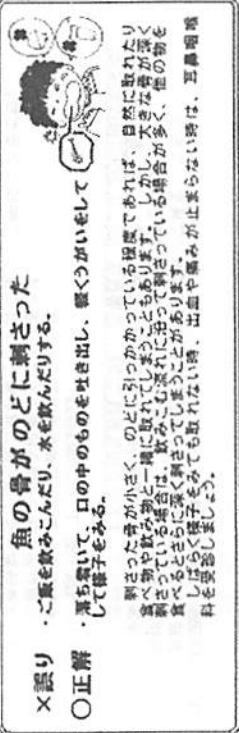 魚の骨がのどに刺さった
×誤り ・ご飯を飲みこんだり、水を飲んだりする。
○正解 ・落ち着いて、口の中のものを吐き出し、軽くうがいをして
して様子をみる。
刺さった骨が小さく、のどに引っかかっている程度であれば、自然に取れたり
食べ物や飲み物と一緒に取れてしまうこともあります。しかし、大きな骨が深く
刺さっている場合は、飲みこむ流れに沿って刺さっている場合が多く、他の物を
食べるとさらに深く刺さってしまうことがあります。
しばらく様子をみても取れない時、出血や痛みが止まらない時は、耳鼻咽喉
科を受診しましょう。